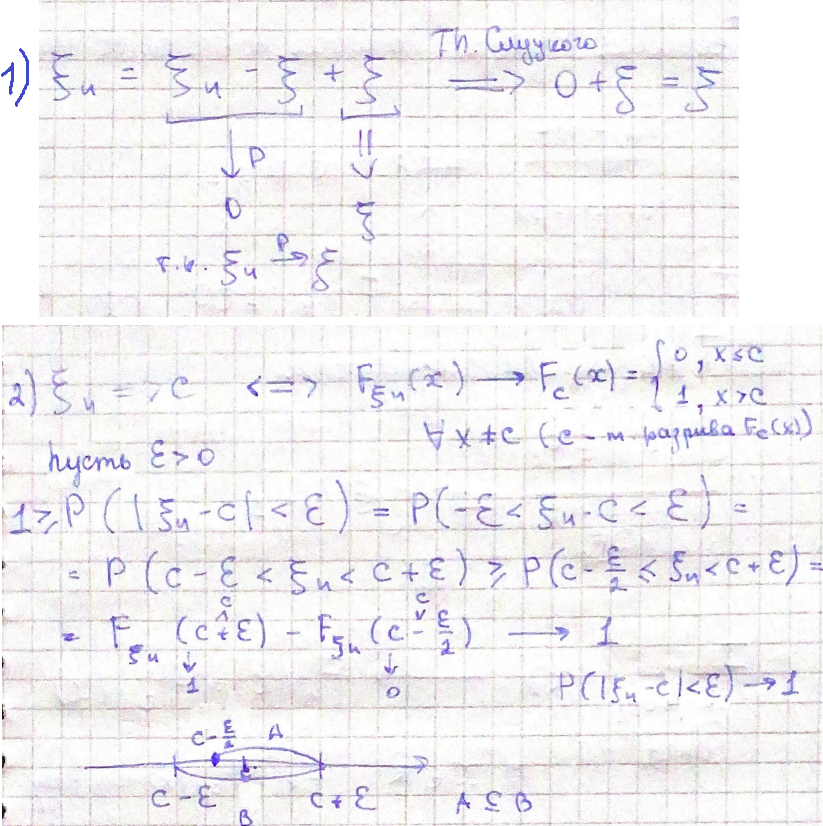 1) ξₙ = ξₙ - ξ + ξ ⟹ 0 + ξ = ξ
Th. Слуцкого
↓ P ⇓
0 ξ
т.к. ξₙ →ᴾ ξ
2) ξₙ => c <=> F_ξₙ(x) → F_c(x) = { 0, x ≤ c
1, x > c
∀ x ≠ c (c - т. разрива F_c(x))
Пусть ε > 0
1 ≥ P(|ξₙ - c| < ε) = P(-ε < ξₙ - c < ε) =
= P(c - ε < ξₙ < c + ε) ≥ P(c - ε/2 ≤ ξₙ < c + ε) =
c c
^ v
= F_ξₙ(c + ε) - F_ξₙ(c - ε/2) → 1
↓ ↓
1 0
P(|ξₙ - c| < ε) → 1
c - ε/2 A
c
c - ε c + ε
B
A ⊆ B